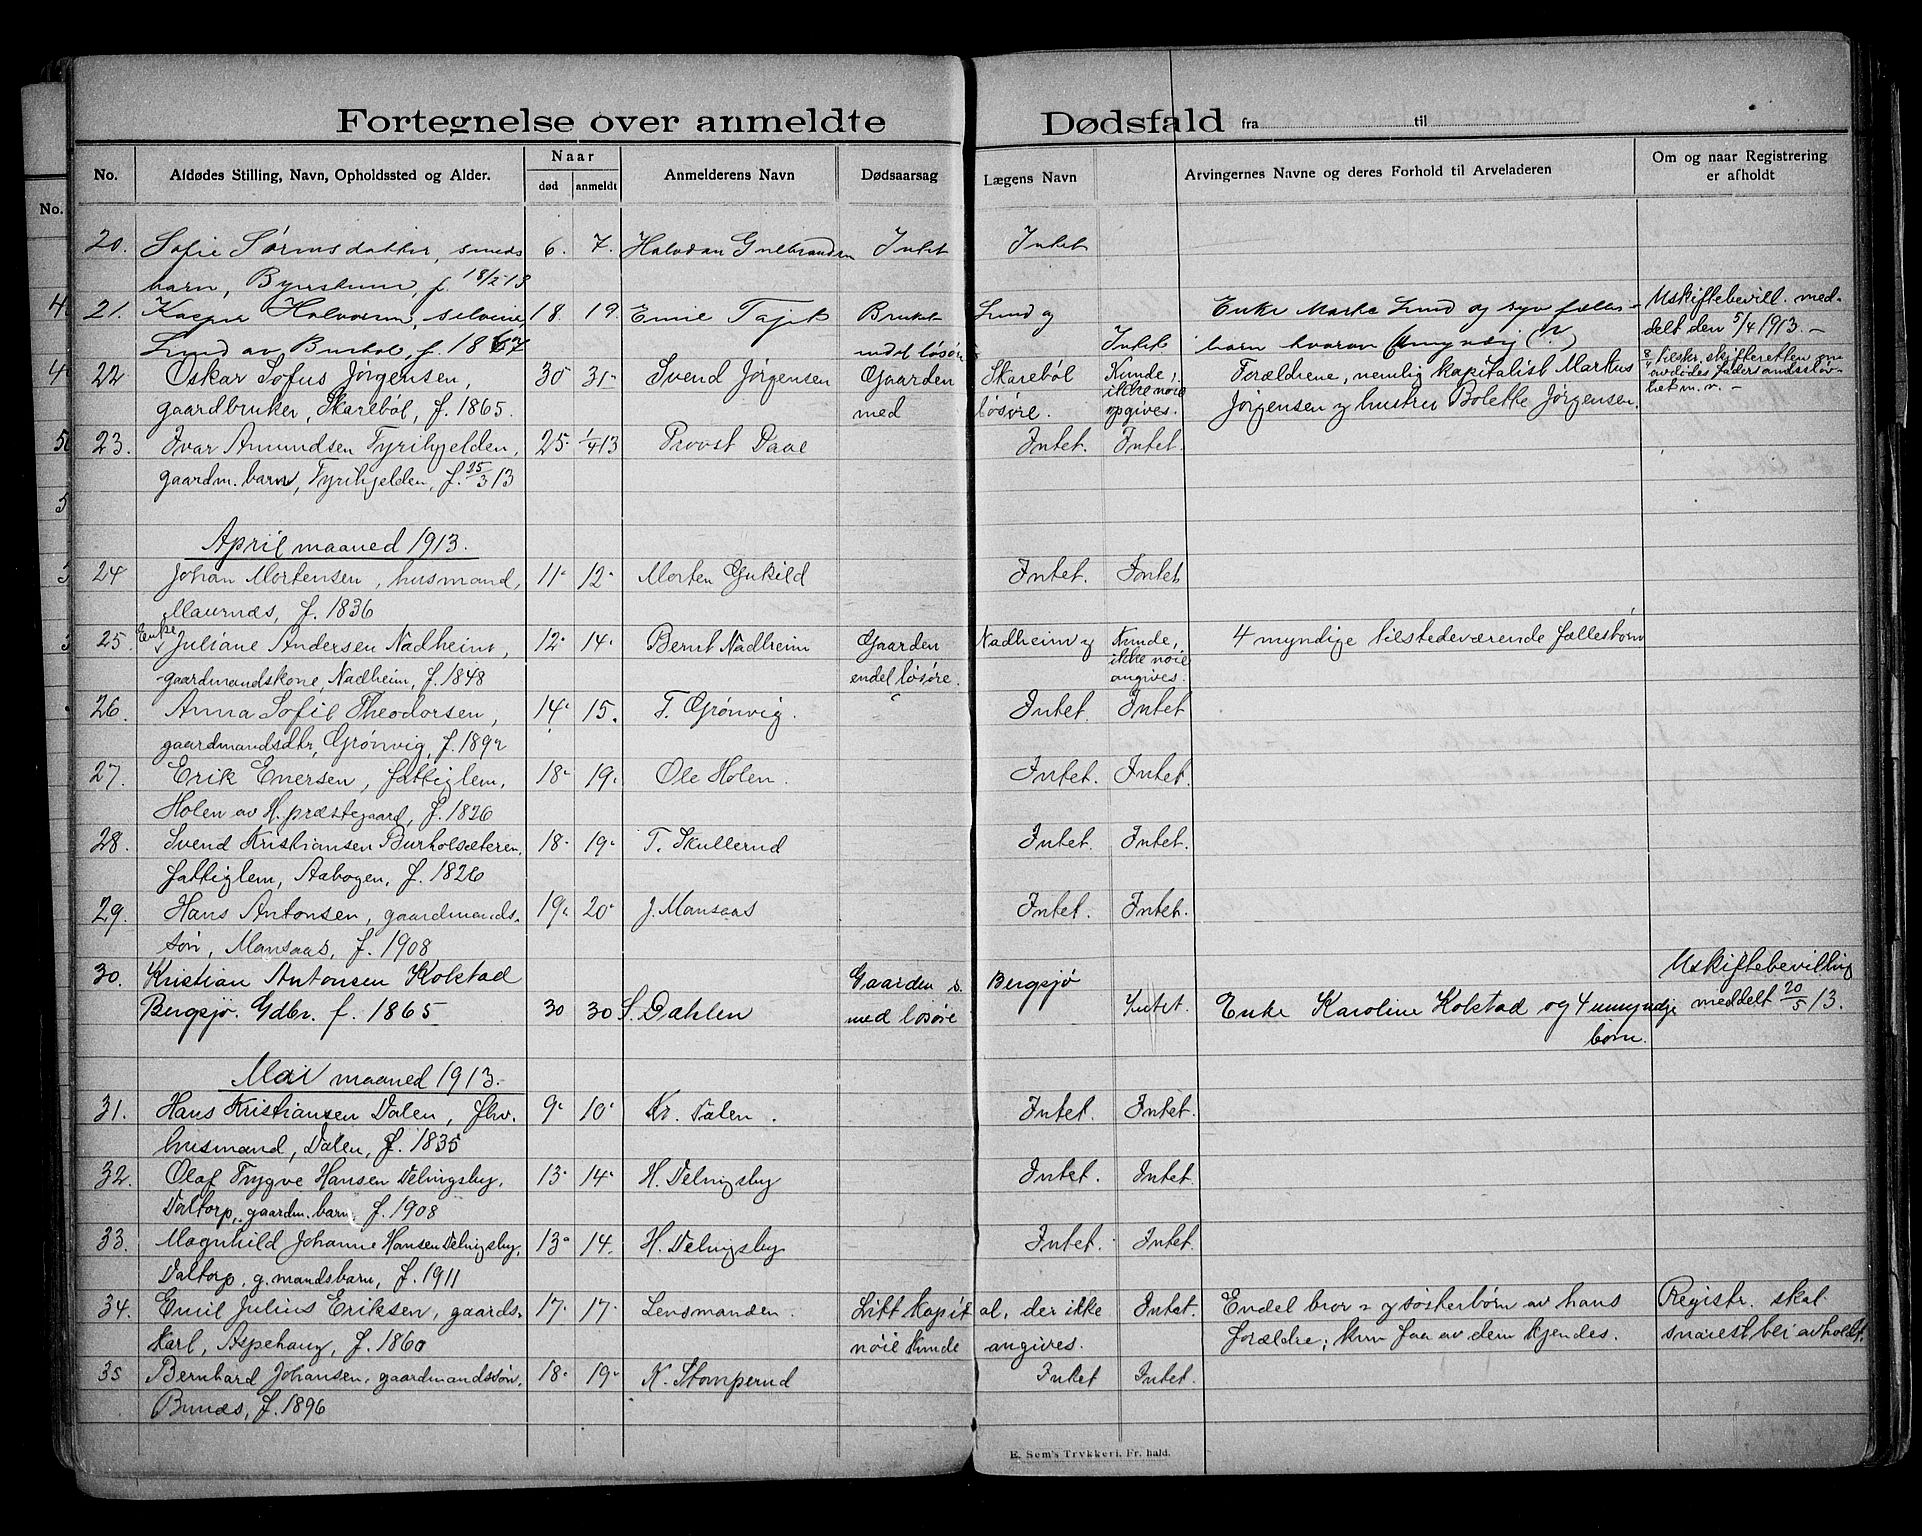 Fortegnelse over anmeldte Dødsfald fra til
No. Afdødes Stilling, Navn, Opholdssted og Alder. Naar død anmeldt Anmelderens Navn Dødsaarsag Lægens Navn Arvingernes Navne og deres Forhold til Arveladeren Om og naar Registrering er afholdt
20. Sofie Sørmsdatter, smeds 6. 7. Halvdan Gulbrandsen Intet Intet
barn, f. 18/2 13
21. Halvorsen, 18. 19. Bruket Lund og Enke Lund og syv fælles- Uskiftebevill. med-
Lund av Burhol, f. 1867 med løsøre Intet barn hvorav delt den 5/4 1913. –
22 Oskar Sofus Jørgensen, 30 31 Svend Jørgensen Gaarden Skarebøl Kunde, Forældrene, nemlig kapitalist Markus 8/4 tilskr. skifteretten om
gaardbruker, Skarebøl, f. 1865. med løsøre. ikke nøie opgives. Jørgensen og hustru Bolette Jørgensen. avdødes m. v. –
23. Ivar Amundsen Tyrihjelden, 25 1/4 13 Provst Daae Intet. Intet.
gaardm. barn, Tyrihjelden, f. 25/3 13
April maaned 1913.
24 Johan Mortensen, husmand, 11 12 Morten Intet. Intet
Maurnæs, f. 1836
25. Enke Juliane Andersen Nadheim, 12 14 Bernt Nadheim Gaarden Nadheim og Kunde, 4 myndige tilstedeværende fællesbørn
gaardmandskone, Nadheim, f. 1848 endel løsøre. ikke nøie angives.
26. Anna Sofie Theodorsen, 14 15. T. Grønvig. Intet. Intet
gaardmandsdtr, Grønvig, f. 1892
27. Erik Enersen, fattiglem, 18 19. Ole Holen. Intet. Intet.
Holen av H. præstegaard, f. 1826
28. Svend Kristiansen Burholsæteren, 18 19 T. Skullerud Intet. Intet.
fattiglem, Aabogen, f. 1826
29. Hans Antonsen, gaardmands- 19 20 J. Mansaas Intet. Intet.
søn, Mansaas, f. 1908
30. Kristian Antonsen Kolstad Gaarden Bergsjø Uskiftebevilling
Bergsjø. Gdbr. f. 1865 30 30 S. Dahlen med løsøre Intet. Enke Karoline Kolstad og 4 umyndje meddelt 20/5 13.
børn.
Mai maaned 1913.
31. Hans Kristiansen Dalen, fhv. 9 10 Kr. Dalen. Intet. Intet.
husmand, Dalen, f. 1835
32. Olaf Trygve Hansen Delingsby, 13 14 H. Delingsby Intet. Intet.
Daltorp, gaardm. barn, f. 1908
33. Magnhild Johanne Hansen Delingsby, 13 14. H. Delingsby Intet. Intet.
Daltorp, g. mandsbarn, f. 1911
34. Emil Julius Eriksen, gaards- 17 17 Lensmanden. Litt kapital, der ikke Intet. Endel bror- og søsterbørn av hans Registr. skal
karl, Aspehaug, f. 1860 nøie kunde angives. forældre; kun faa av dem kjendes. snarest bli avholdt.
35 Bernhard Johansen, gaardmandssøn, 18 19 K. Stomperud Intet Intet.
Bunæs, f. 1896
E. Sem's Trykkeri, Fr. hald.